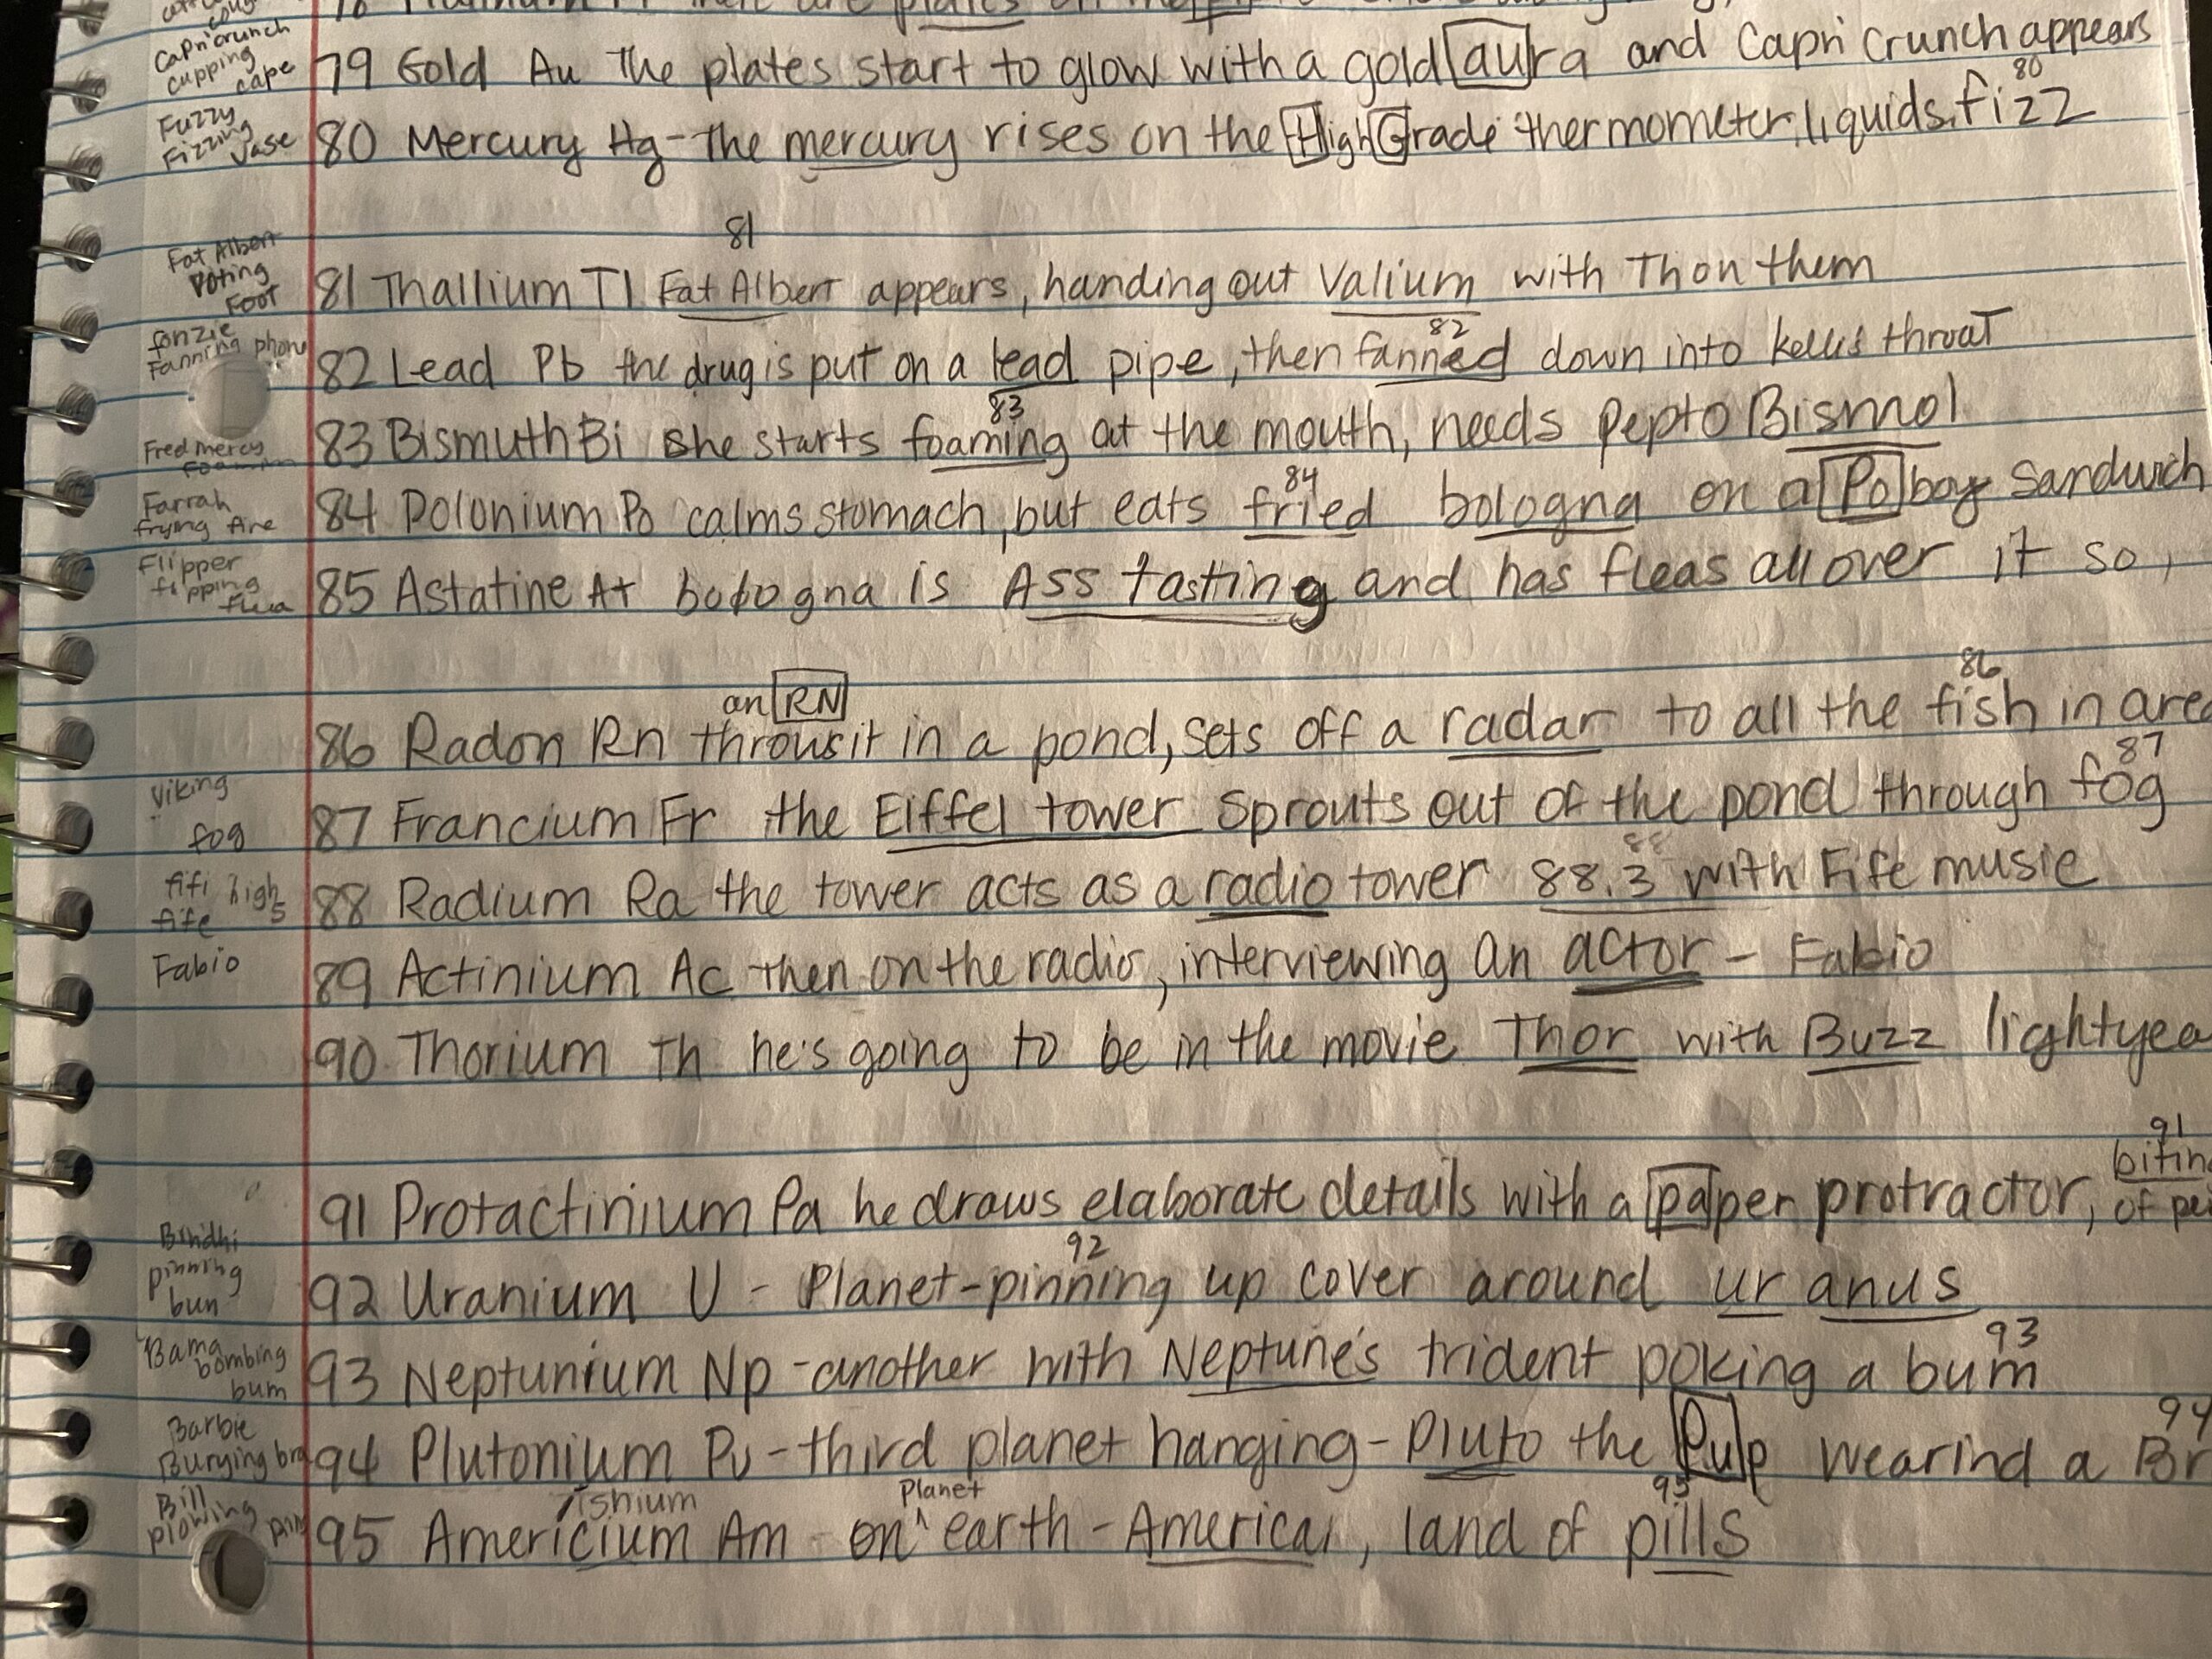 cough
Cap'n crunch
cupping
cape
79 Gold Au The plates start to glow with a gold aura and Cap'n Crunch appears
80
Fuzzy
Fizzing
Vase
80 Mercury Hg - the mercury rises on the High Grade thermometer, liquids fizz
81
Fat Albert
Voting
Foot
81 Thallium Tl Fat Albert appears, handing out Valium with Th on them
fonzie
Fanning phone
82
82 Lead Pb the drug is put on a lead pipe, then fanned down into Kelli's throat
83
Fred Mercy
83 Bismuth Bi she starts foaming at the mouth, needs Pepto Bismol
84
Farrah
frying fire
84 Polonium Po calms stomach, but eats fried bologna on a Po boy Sandwich
Flipper
flipping
flea
85 Astatine At bologna is Ass tasting and has fleas all over it so,
an RN
86
86 Radon Rn throws it in a pond, sets off a radar to all the fish in area
87
Viking
fog
87 Francium Fr the Eiffel tower Sprouts out of the pond through fog
88
fifi high 5
fife
88 Radium Ra the tower acts as a radio tower 88.3 with Fife music
Fabio
89 Actinium Ac then on the radio, interviewing an actor - Fabio
90 Thorium Th he's going to be in the movie Thor with Buzz lightyea
91
biting
91 Protactinium Pa he draws elaborate details with a paper protractor, of
92
Bindhi
pinning
bun
92 Uranium U - Planet-pinning up cover around ur anus
93
Bama
bombing
bum
93 Neptunium Np - another with Neptune's trident poking a bum
94
Barbie
Burying bra
94 Plutonium Pu - third planet hanging - Pluto the Pulp wearind a Br
ishium
Planet
95
Bill
plowing
95 Americium Am on earth - America, land of pills